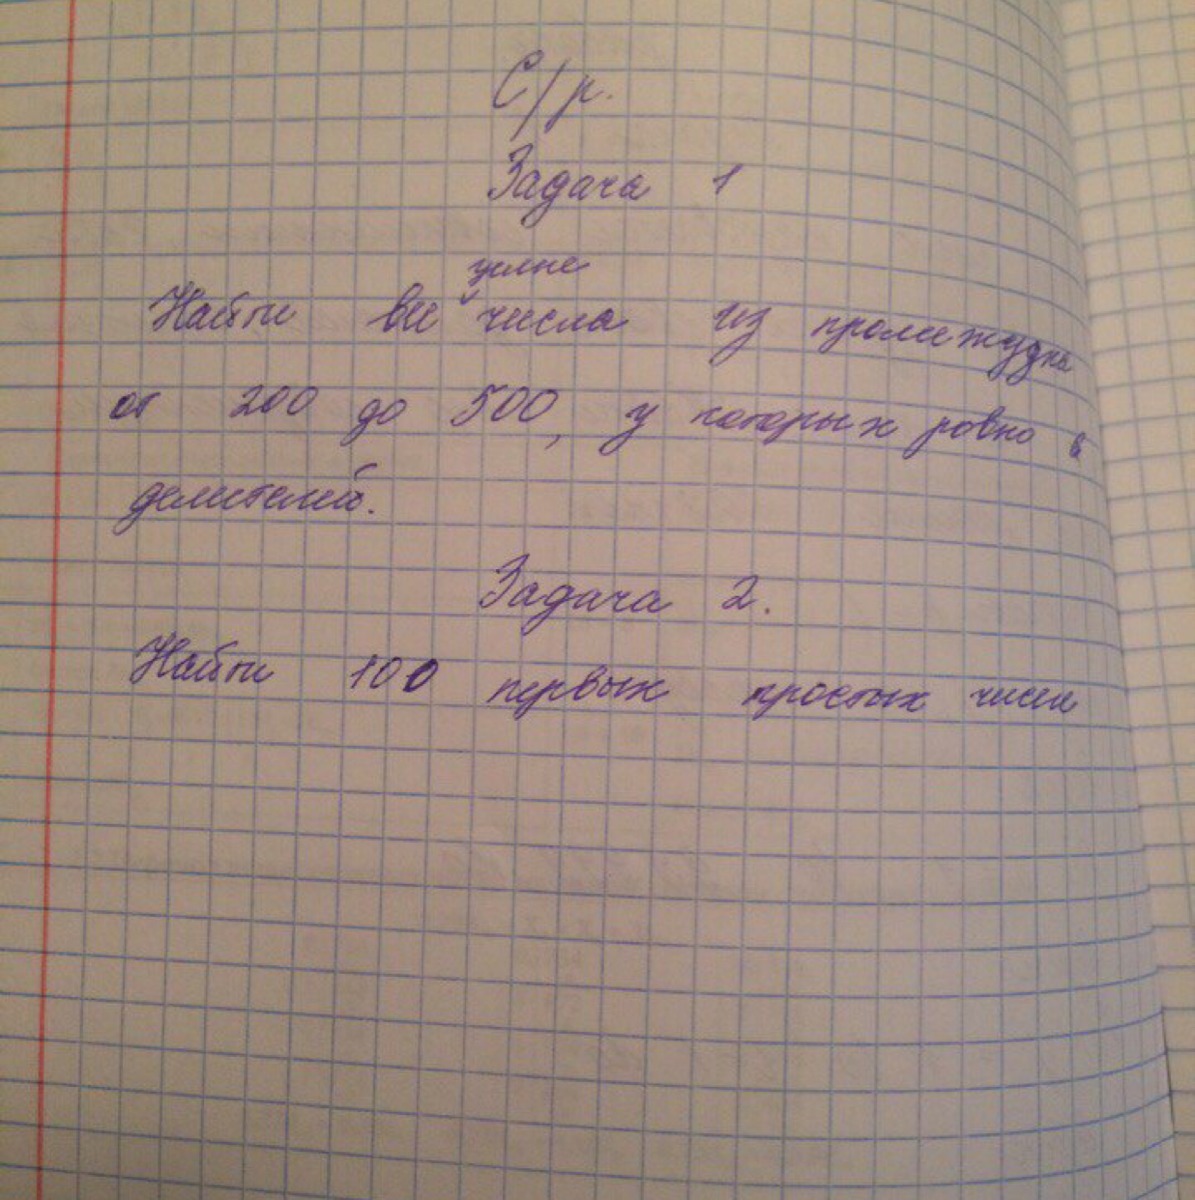 С/р.
Задача 1
целые
Найти все числа из промежудка
от 200 до 500, у которых ровно 6
делителей.
Задача 2.
Найти 100 первых простых чисел